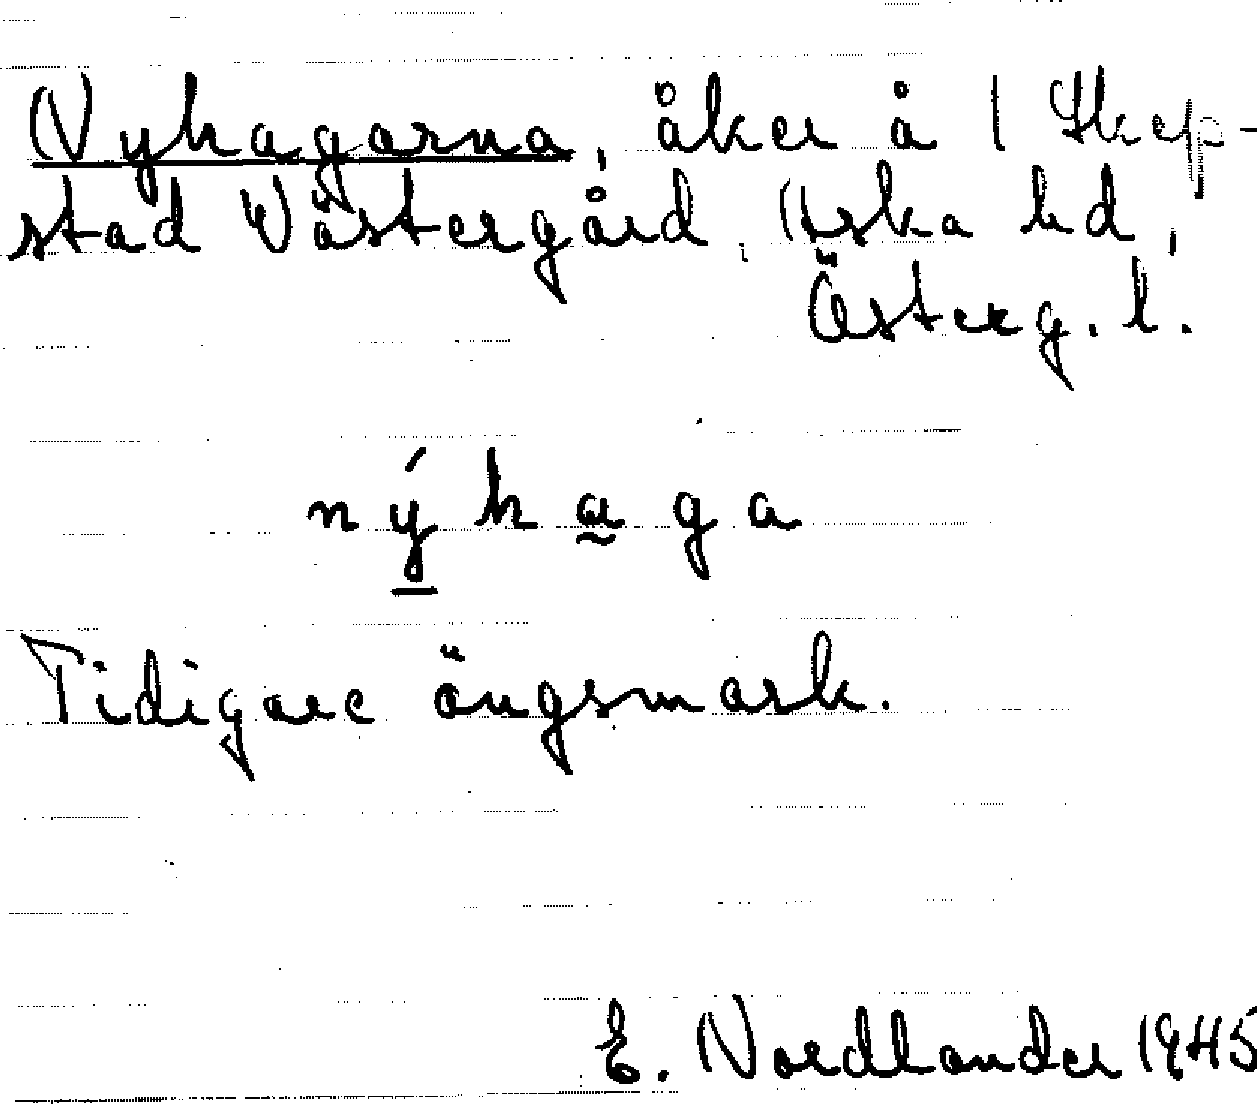 Nyhagarna, åker å 1 Skep-
stad Västergård, Aska hd,
Österg. l.
nýhaga
Tidigare ängsmark.
E. Nordlander 1945